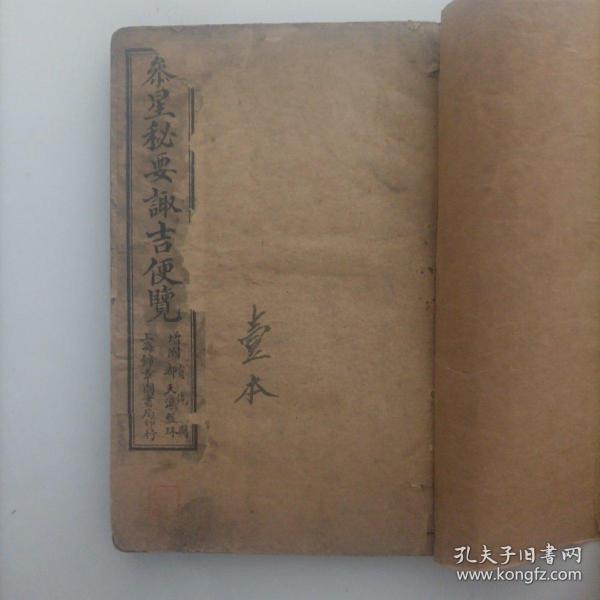 參星秘要諏吉便覽
增附
都天寶照
上海錦章圖書局印行
壹本
孔夫子旧书网
www.kongfz.com